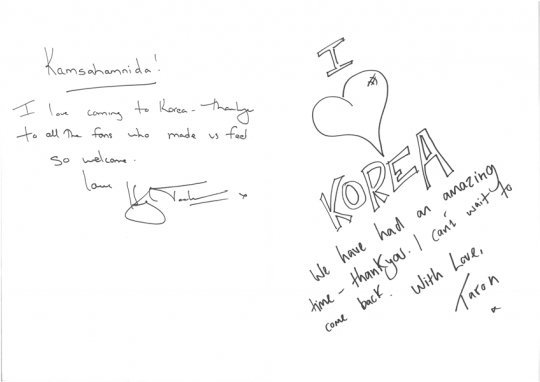 Kamsahamnida!
I love coming to Korea - Thankyou
to all The fans who made us feel
so welcome.
Love
x
I
KOREA
We have had an amazing
time - thankyou. I can't wait to
come back. With Love,
Taron
x